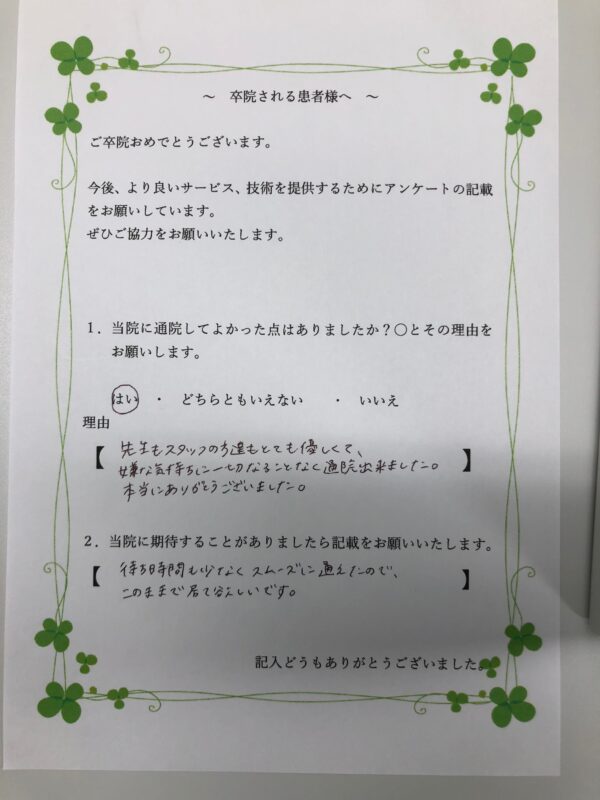 ～ 卒院される患者様へ ～
ご卒院おめでとうございます。
今後、より良いサービス、技術を提供するためにアンケートの記載
をお願いしています。
ぜひご協力をお願いいたします。
１．当院に通院してよかった点はありましたか？〇とその理由を
お願いします。
はい ・ どちらともいえない ・ いいえ
理由
【 先生もスタッフの方達もとても優しくて、
嫌な気持ちに一切なることなく通院出来ました。 】
本当にありがとうございました。
２．当院に期待することがありましたら記載をお願いいたします。
【 待ち時間も少なくスムーズに通えたので、 】
このままで居て欲しいです。
記入どうもありがとうございました。